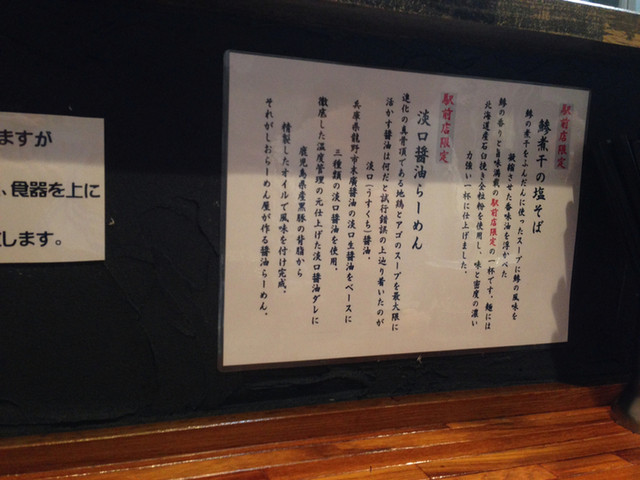 駅前店限定
鯵煮干の塩そば
鯵の煮干をふんだんに使ったスープに鯵の風味を
凝縮させた香味油を浮かべた
鯵の香りと旨味満載の駅前店限定の一杯です。麺には
北海道産石臼挽き全粒粉を使用し、味と密度の濃い
力強い一杯に仕上げました。
駅前店限定
淡口醤油らーめん
進化の真骨頂である地鶏とアゴのスープを最大限に
活かす醤油は何だと試行錯誤の上辿り着いたのが
淡口(うすくち)醤油。
兵庫県龍野市末廣醤油の淡口生醤油をベースに
三種類の淡口醤油を使用。
徹底した温度管理の元仕上げた淡口醤油ダレに
鹿児島県産黒豚の背脂から
精製したオイルで風味を付け完成。
それがしおらーめん屋が作る醤油らーめん。
ますが
、食器を上に
します。